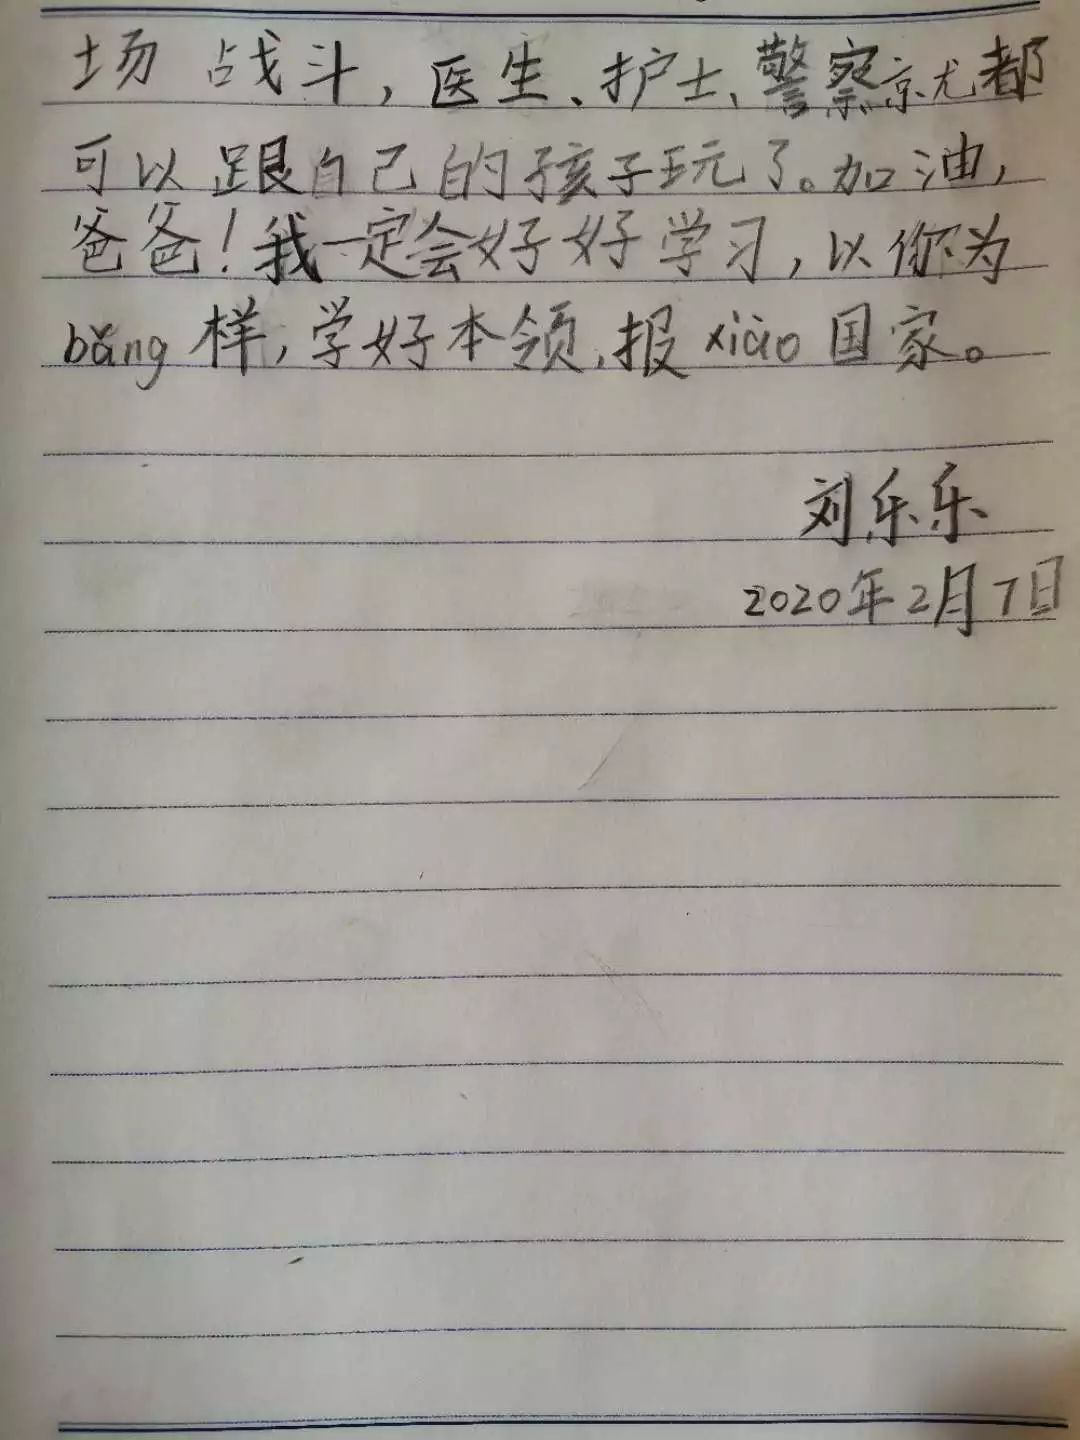 场 战斗，医生、护士、警察京尤都
可以跟自己的孩子玩了。加油，
爸爸！我一定会好好学习，以你为
bǎng样，学好本领，报xiào国家。
刘乐乐
2020年2月7日